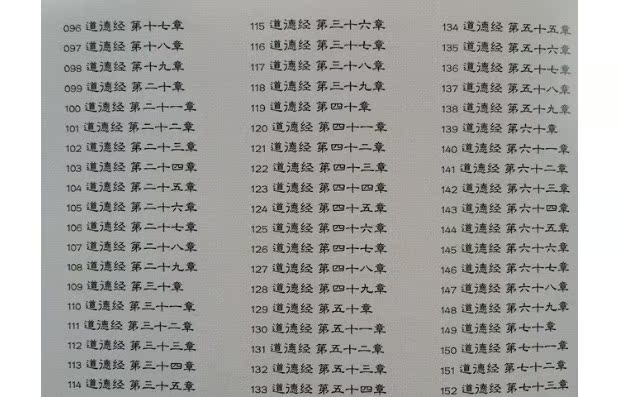 096 道德经 第十七章
097 道德经 第十八章
098 道德经 第十九章
099 道德经 第二十章
100 道德经 第二十一章
101 道德经 第二十二章
102 道德经 第二十三章
103 道德经 第二十四章
104 道德经 第二十五章
105 道德经 第二十六章
106 道德经 第二十七章
107 道德经 第二十八章
108 道德经 第二十九章
109 道德经 第三十章
110 道德经 第三十一章
111 道德经 第三十二章
112 道德经 第三十三章
113 道德经 第三十四章
114 道德经 第三十五章
115 道德经 第三十六章
116 道德经 第三十七章
117 道德经 第三十八章
118 道德经 第三十九章
119 道德经 第四十章
120 道德经 第四十一章
121 道德经 第四十二章
122 道德经 第四十三章
123 道德经 第四十四章
124 道德经 第四十五章
125 道德经 第四十六章
126 道德经 第四十七章
127 道德经 第四十八章
128 道德经 第四十九章
129 道德经 第五十章
130 道德经 第五十一章
131 道德经 第五十二章
132 道德经 第五十三章
133 道德经 第五十四章
134 道德经 第五十五章
135 道德经 第五十六章
136 道德经 第五十七章
137 道德经 第五十八章
138 道德经 第五十九章
139 道德经 第六十章
140 道德经 第六十一章
141 道德经 第六十二章
142 道德经 第六十三章
143 道德经 第六十四章
144 道德经 第六十五章
145 道德经 第六十六章
146 道德经 第六十七章
147 道德经 第六十八章
148 道德经 第六十九章
149 道德经 第七十章
150 道德经 第七十一章
151 道德经 第七十二章
152 道德经 第七十三章